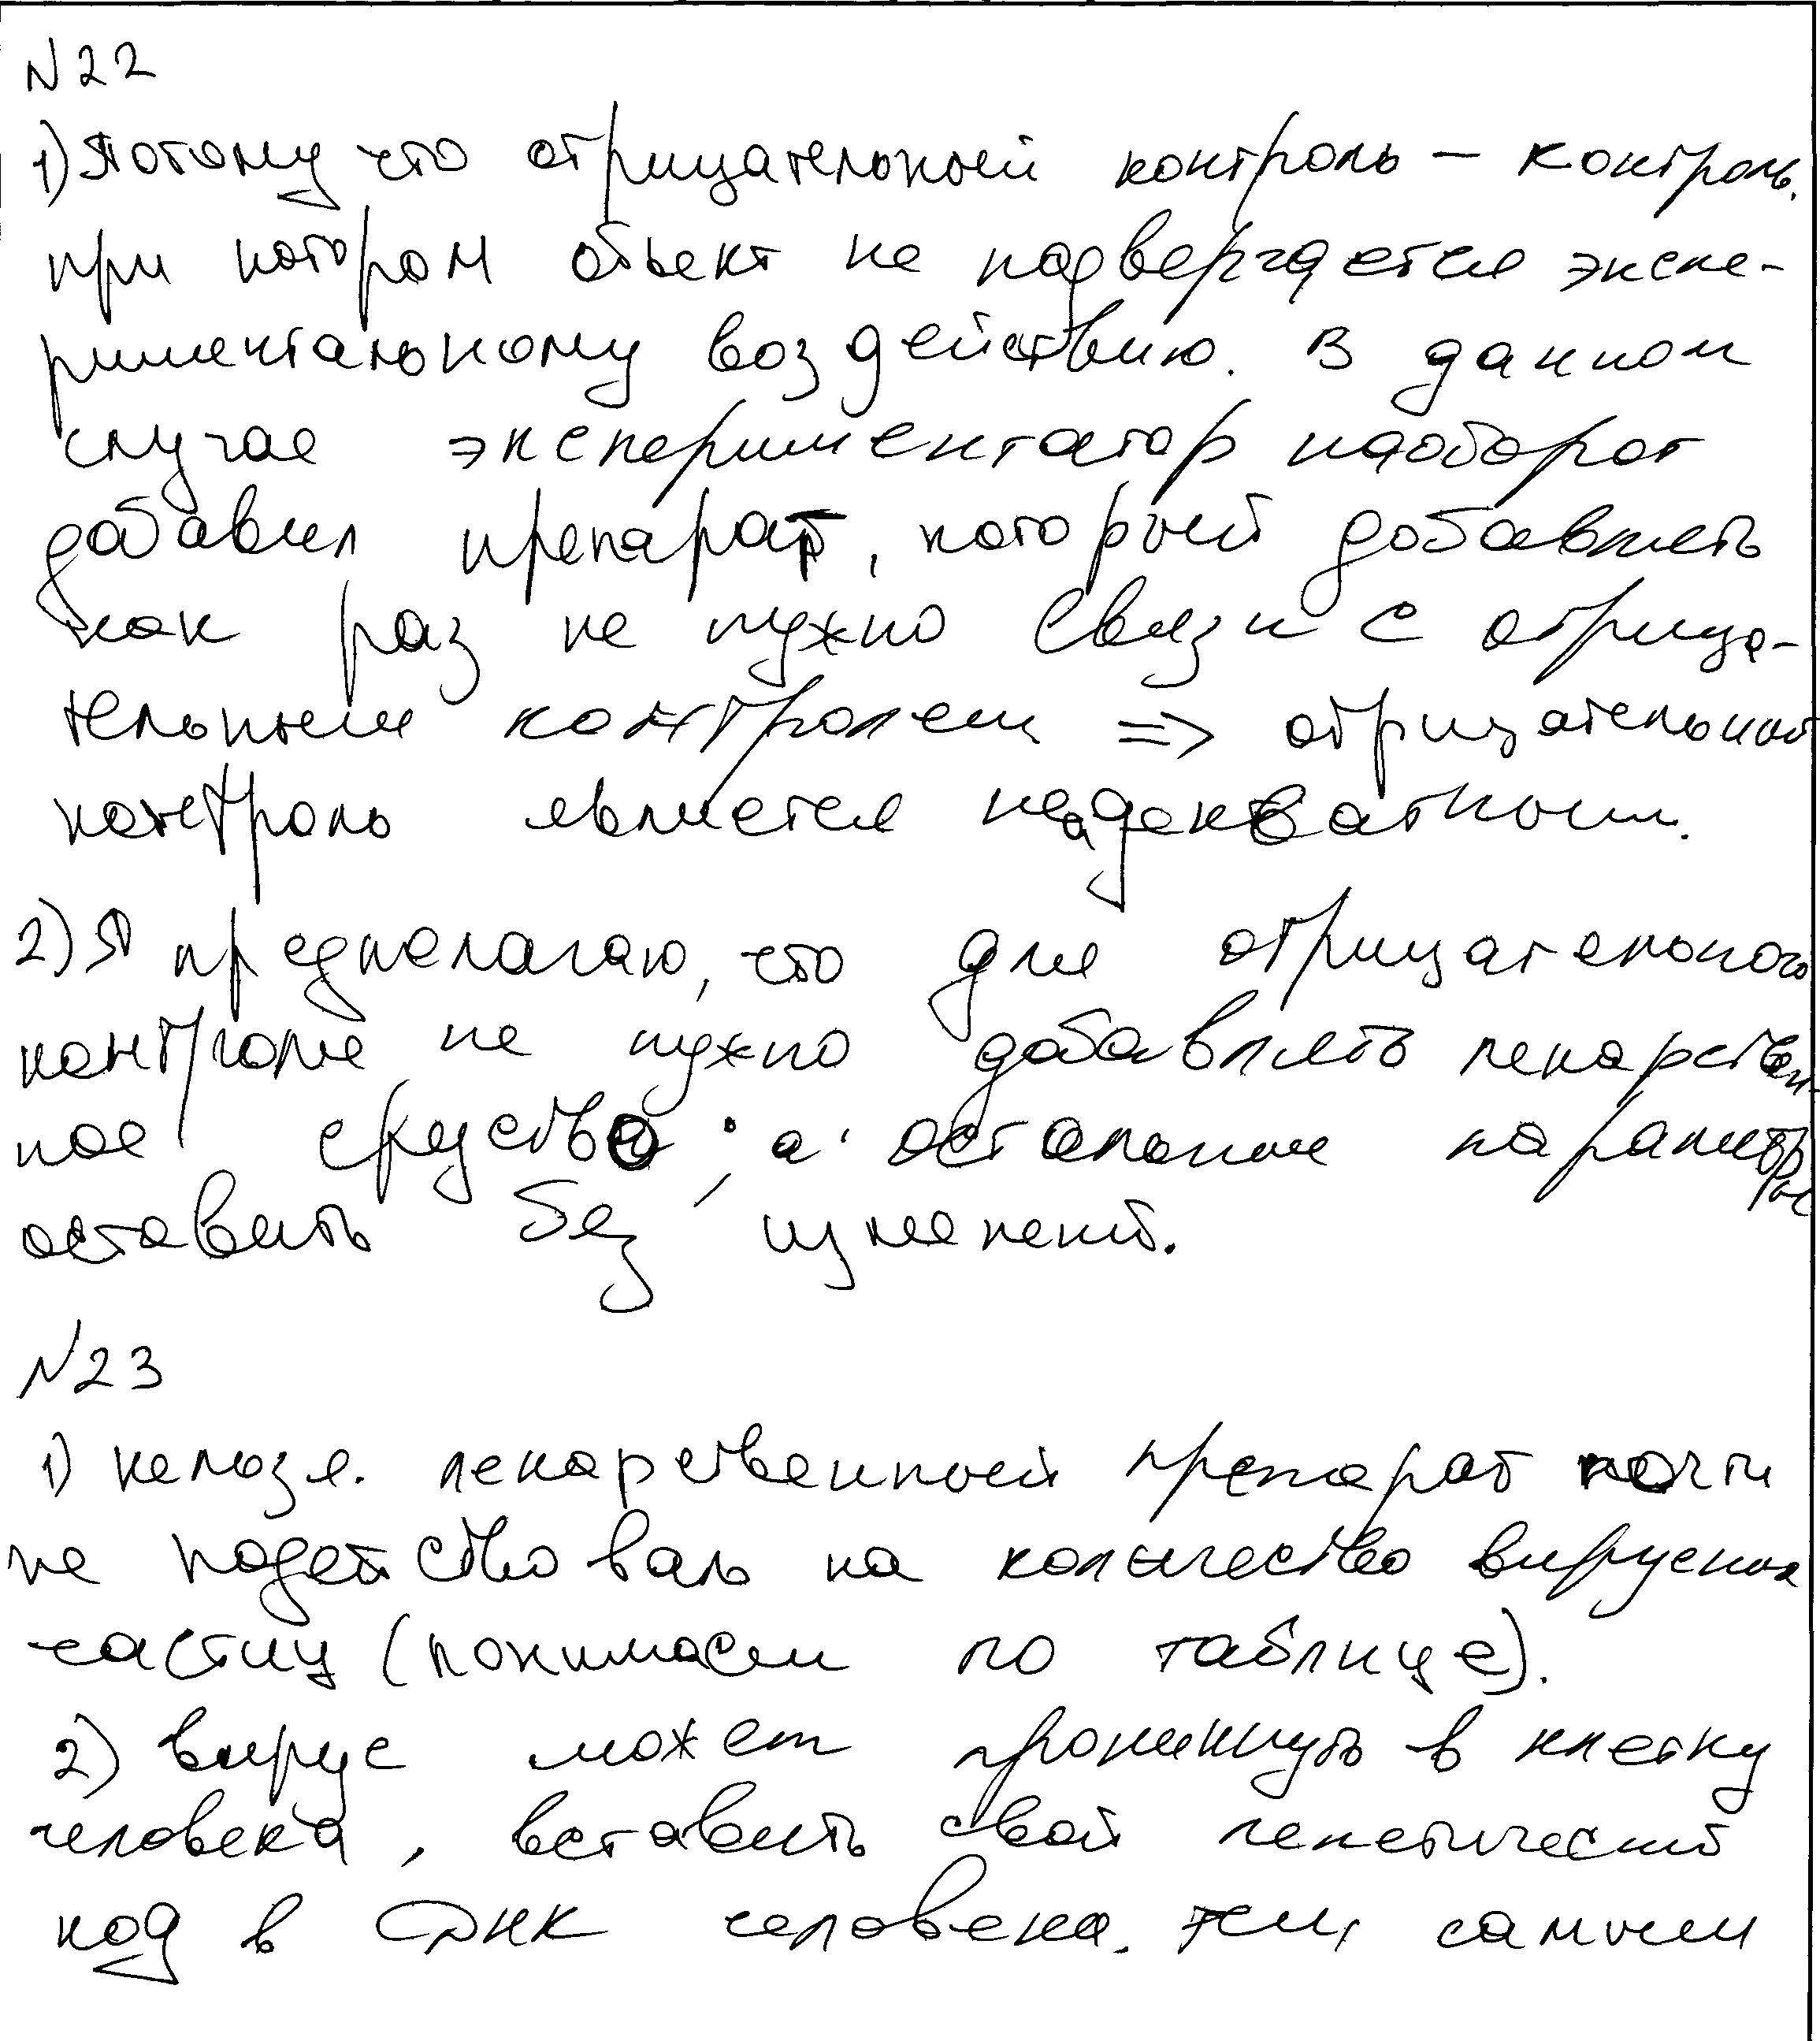 N22
1) Потому что отрицательный контроль – контроль.
при котором объект не подвергается экспе-
риментальному воздействию. В данном
случае экспериментатор наоборот
добавил препарат, который добавлять
как раз не нужно связи с отрица-
тельным контролем => отрицательный
контроль является неадекватным.
2) Я предполагаю, что для отрицательного
контроля не нужно добавлять лекарствен-
ное средство, а остальные параметры
оставить без изменений.
N23
1) нельзя. лекарственный препарат почти
не подействовал на количество вирусных
частиц (понимаем по таблице).
2) вирус может проникнуть в клетку
человека, вставить свой генетический
код в ДНК человека. тем самым